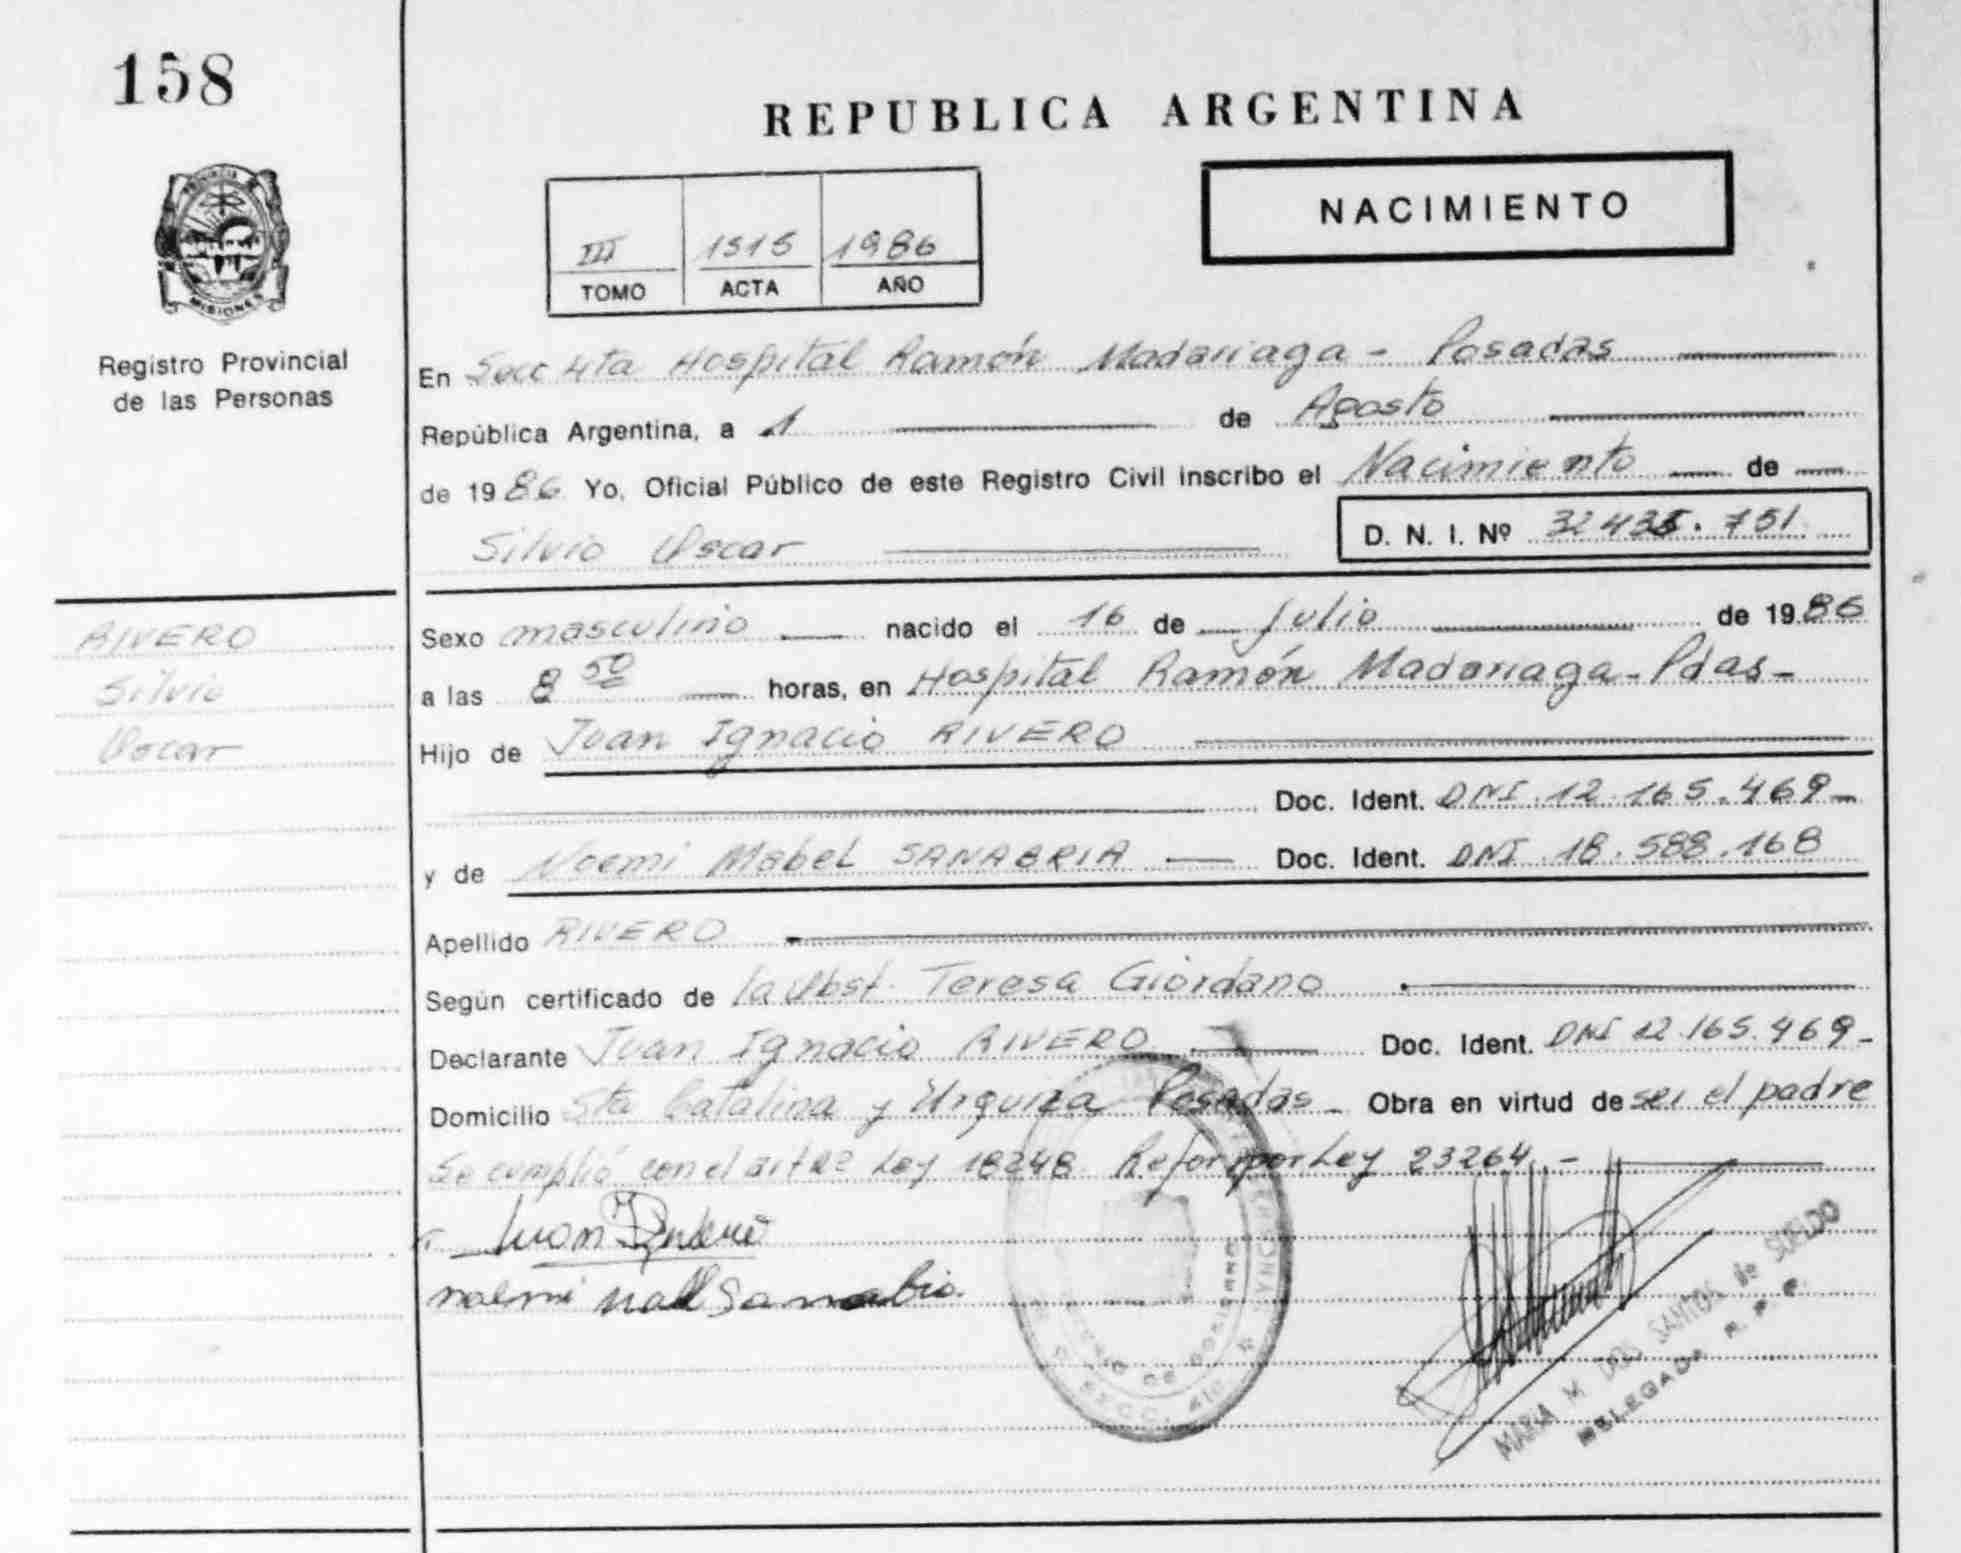 158
REPUBLICA ARGENTINA
PROVINCIA DE
MISIONES
Registro Provincial
de las Personas
III 1515 1986
TOMO ACTA AÑO
NACIMIENTO
En Secc 4ta Hospital Ramón Madariaga - Posadas
República Argentina, a 1 de Agosto
de 1986 Yo, Oficial Público de este Registro Civil inscribo el Nacimiento de
Silvio Oscar D. N. I. Nº 32.435.751
RIVERO
Silvio
Oscar
Sexo masculino nacido el 16 de Julio de 1986
a las 8 50 horas, en Hospital Ramón Madariaga - Pdas -
Hijo de Juan Ignacio RIVERO
Doc. Ident. DNI 12.165.469 -
y de Noemi Mabel SANABRIA Doc. Ident. DNI 18.588.168
Apellido RIVERO
Según certificado de la Obst. Teresa Giordano
Declarante Juan Ignacio RIVERO Doc. Ident. DNI 12.165.469 -
Domicilio Sta Catalina y Urquiza Posadas - Obra en virtud de ser el padre
Se cumplió con el art Ley 18248 Refor por Ley 23264 -
Juan
noemi Sanabria
MARIA M. DOS SANTOS de SUELDO
DELEGADA R. P. P.